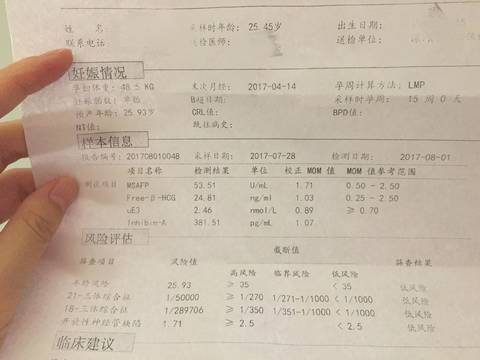 姓 名: 采样时年龄: 25.45岁 出生日期:
联系电话: 送检医师: 送检单位:
妊娠情况
孕妇体重: 48.5 KG 末次月经: 2017-04-14 孕周计算方法: LMP
妊娠胎数: 单胎 B超日期: 采样时孕周: 15 周 0 天
预产年龄: 25.93岁 CRL值: BPD值:
NT值: 既往病史:
样本信息
报告编号: 201708010048 采样日期: 2017-07-28 检测日期: 2017-08-01
项目名称 检测结果 单位 校正 MOM 值 MOM 值参考范围
测试项目 MSAFP 53.51 U/mL 1.71 0.50 - 2.50
Free-β-HCG 24.81 ng/ml 1.03 0.25 - 2.50
uE3 2.46 nmol/L 0.89 ≥ 0.70
Inhibin-A 381.51 pg/mL 1.07
风险评估
截断值
筛查项目 风险值 筛查结果
高风险 临界风险 低风险
年龄风险 25.93 ≥ 35 < 35 低风险
21-三体综合征 1/50000 ≥ 1/270 1/271-1/1000 < 1/1000 低风险
18-三体综合征 1/289706 ≥ 1/350 1/351-1/1000 < 1/1000 低风险
开放性神经管缺陷 1.71 ≥ 2.5 < 2.5 低风险
临床建议